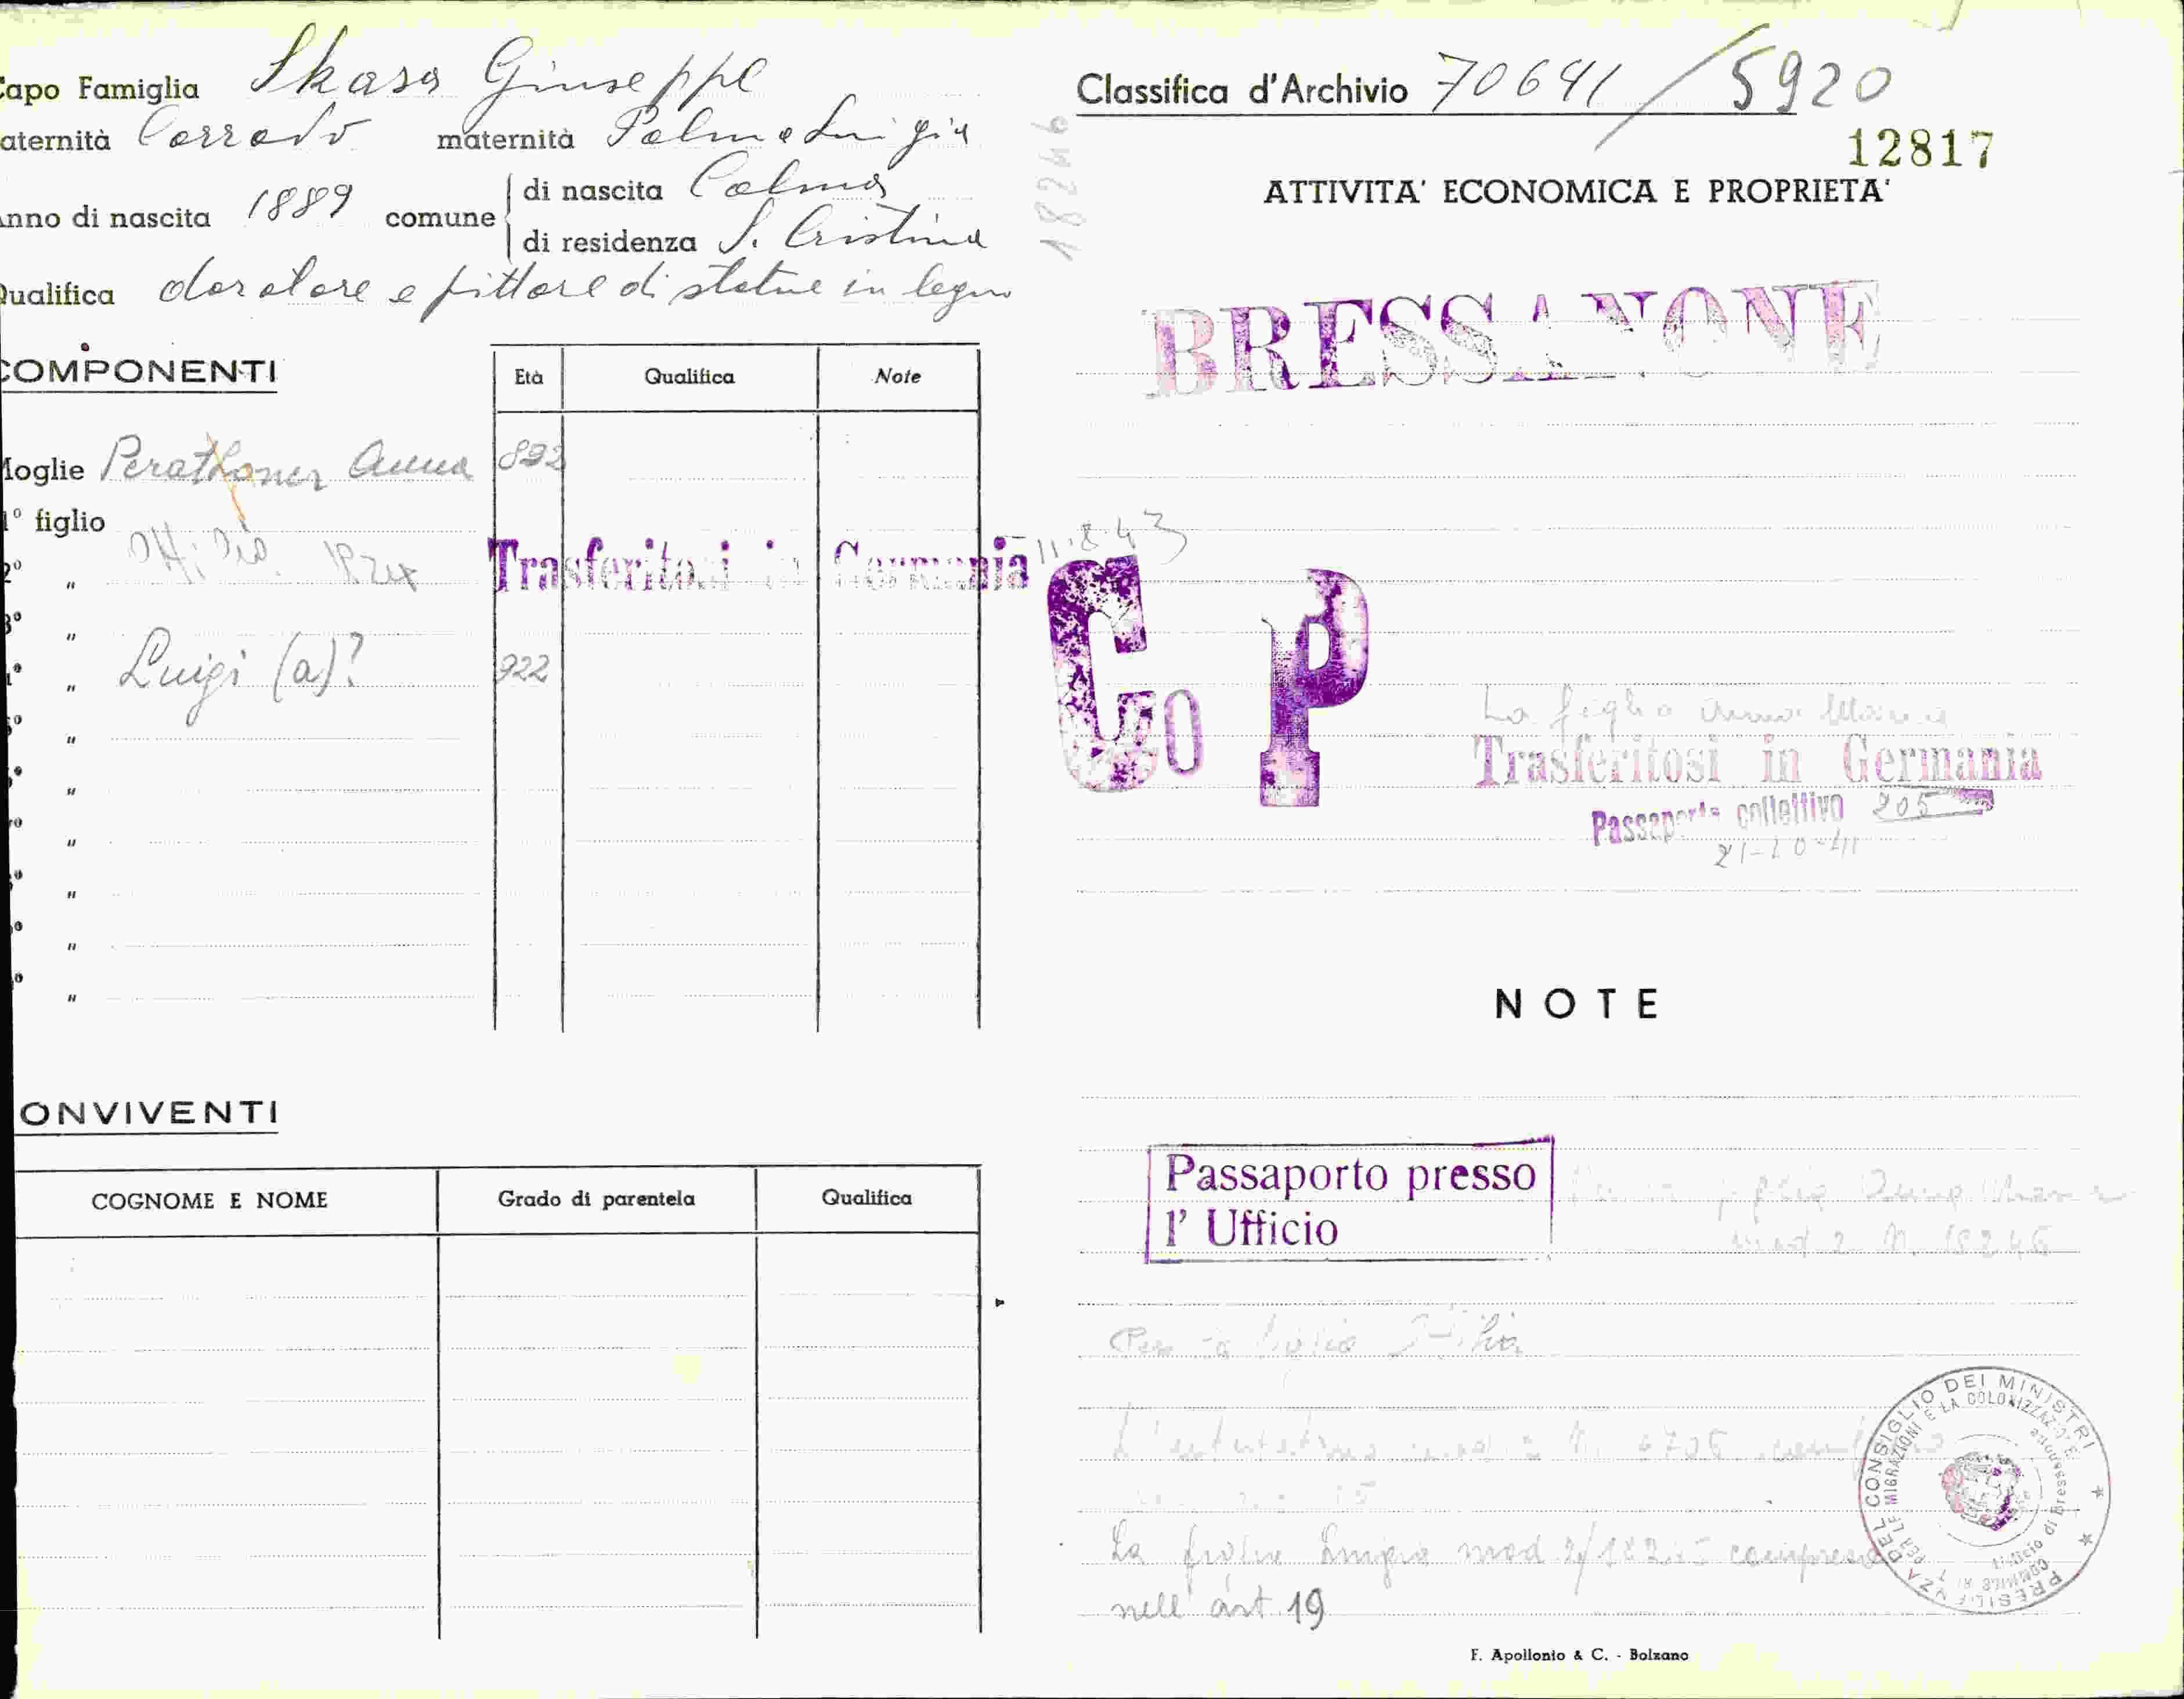 Capo Famiglia Skasa Giuseppe
aternità Corrado maternità Palma Luigia
Anno di nascita 1889 comune di nascita Colma
di residenza S. Cristina
Qualifica doratore e pittore di statue in legno
COMPONENTI
Età Qualifica Note
Moglie Perathoner Anna 892
1° figlio
2° "
Trasferitosi in Germania 11.8.43
3° "
" Luigi (a)? 922
"
"
"
"
"
"
CONVIVENTI
COGNOME E NOME Grado di parentela Qualifica
18246
Classifica d'Archivio 70641/5920
12817
ATTIVITA' ECONOMICA E PROPRIETA'
BRESSANONE
Co P
La figlia Anna Maria
Trasferitosi in Germania
Passaporto collettivo 205
21-10-41
NOTE
Passaporto presso
l' Ufficio
figlia Anna Maria
mod 2 N. 18246
Per la figlia
La figlia Luigia mod 2/ compresa
nell' art. 19
PRESIDENZA DEL CONSIGLIO DEI MINISTRI
PER LE MIGRAZIONI E LA COLONIZZAZIONE
Ufficio di Bressanone
F. Apollonio & C. - Bolzano